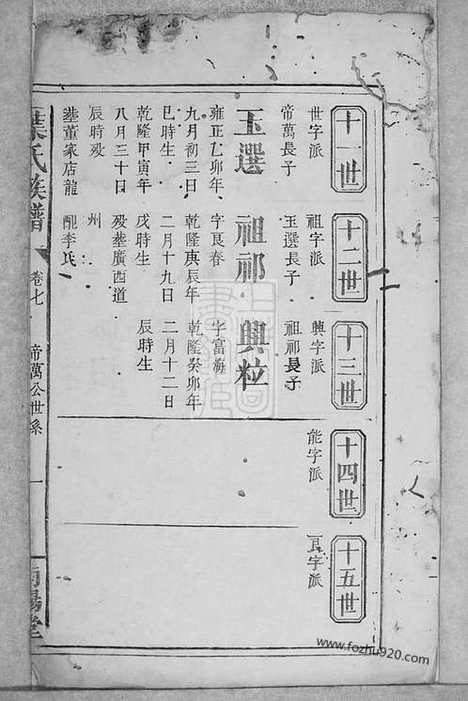 十一世
世字派
帝萬長子
玉選
雍正乙卯年
九月初三日
巳時生
乾隆甲寅年
八月三十日
辰時殁
塟董家店龍
十二世
祖字派
玉選長子
祖祁
字良春
乾隆庚辰年
二月十九日
戌時生
殁塟廣西道
州
配李氏
十三世
興字派
祖祁長子
興粒
字富海
乾隆癸卯年
二月十二日
辰時生
十四世
能字派
十五世
良字派
葉氏族譜
卷七
帝萬公世系
一
南陽堂
www.fozhu920.com